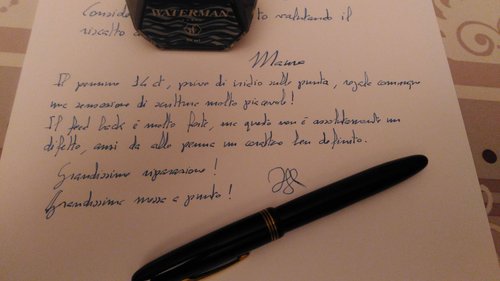 Conside to valutando il
WATERMAN
riscatto a
Mauro
Il pennino 14 ct, privo di iridio sulla punta, regala comunque
una sensazione di scrittura molto piacevole!
Il feed back è molto forte, ma questo non è assolutamente un
difetto, anzi da alla penna un carattere ben definito.
Grandissima riparazione!
Grandissima messa a punto!